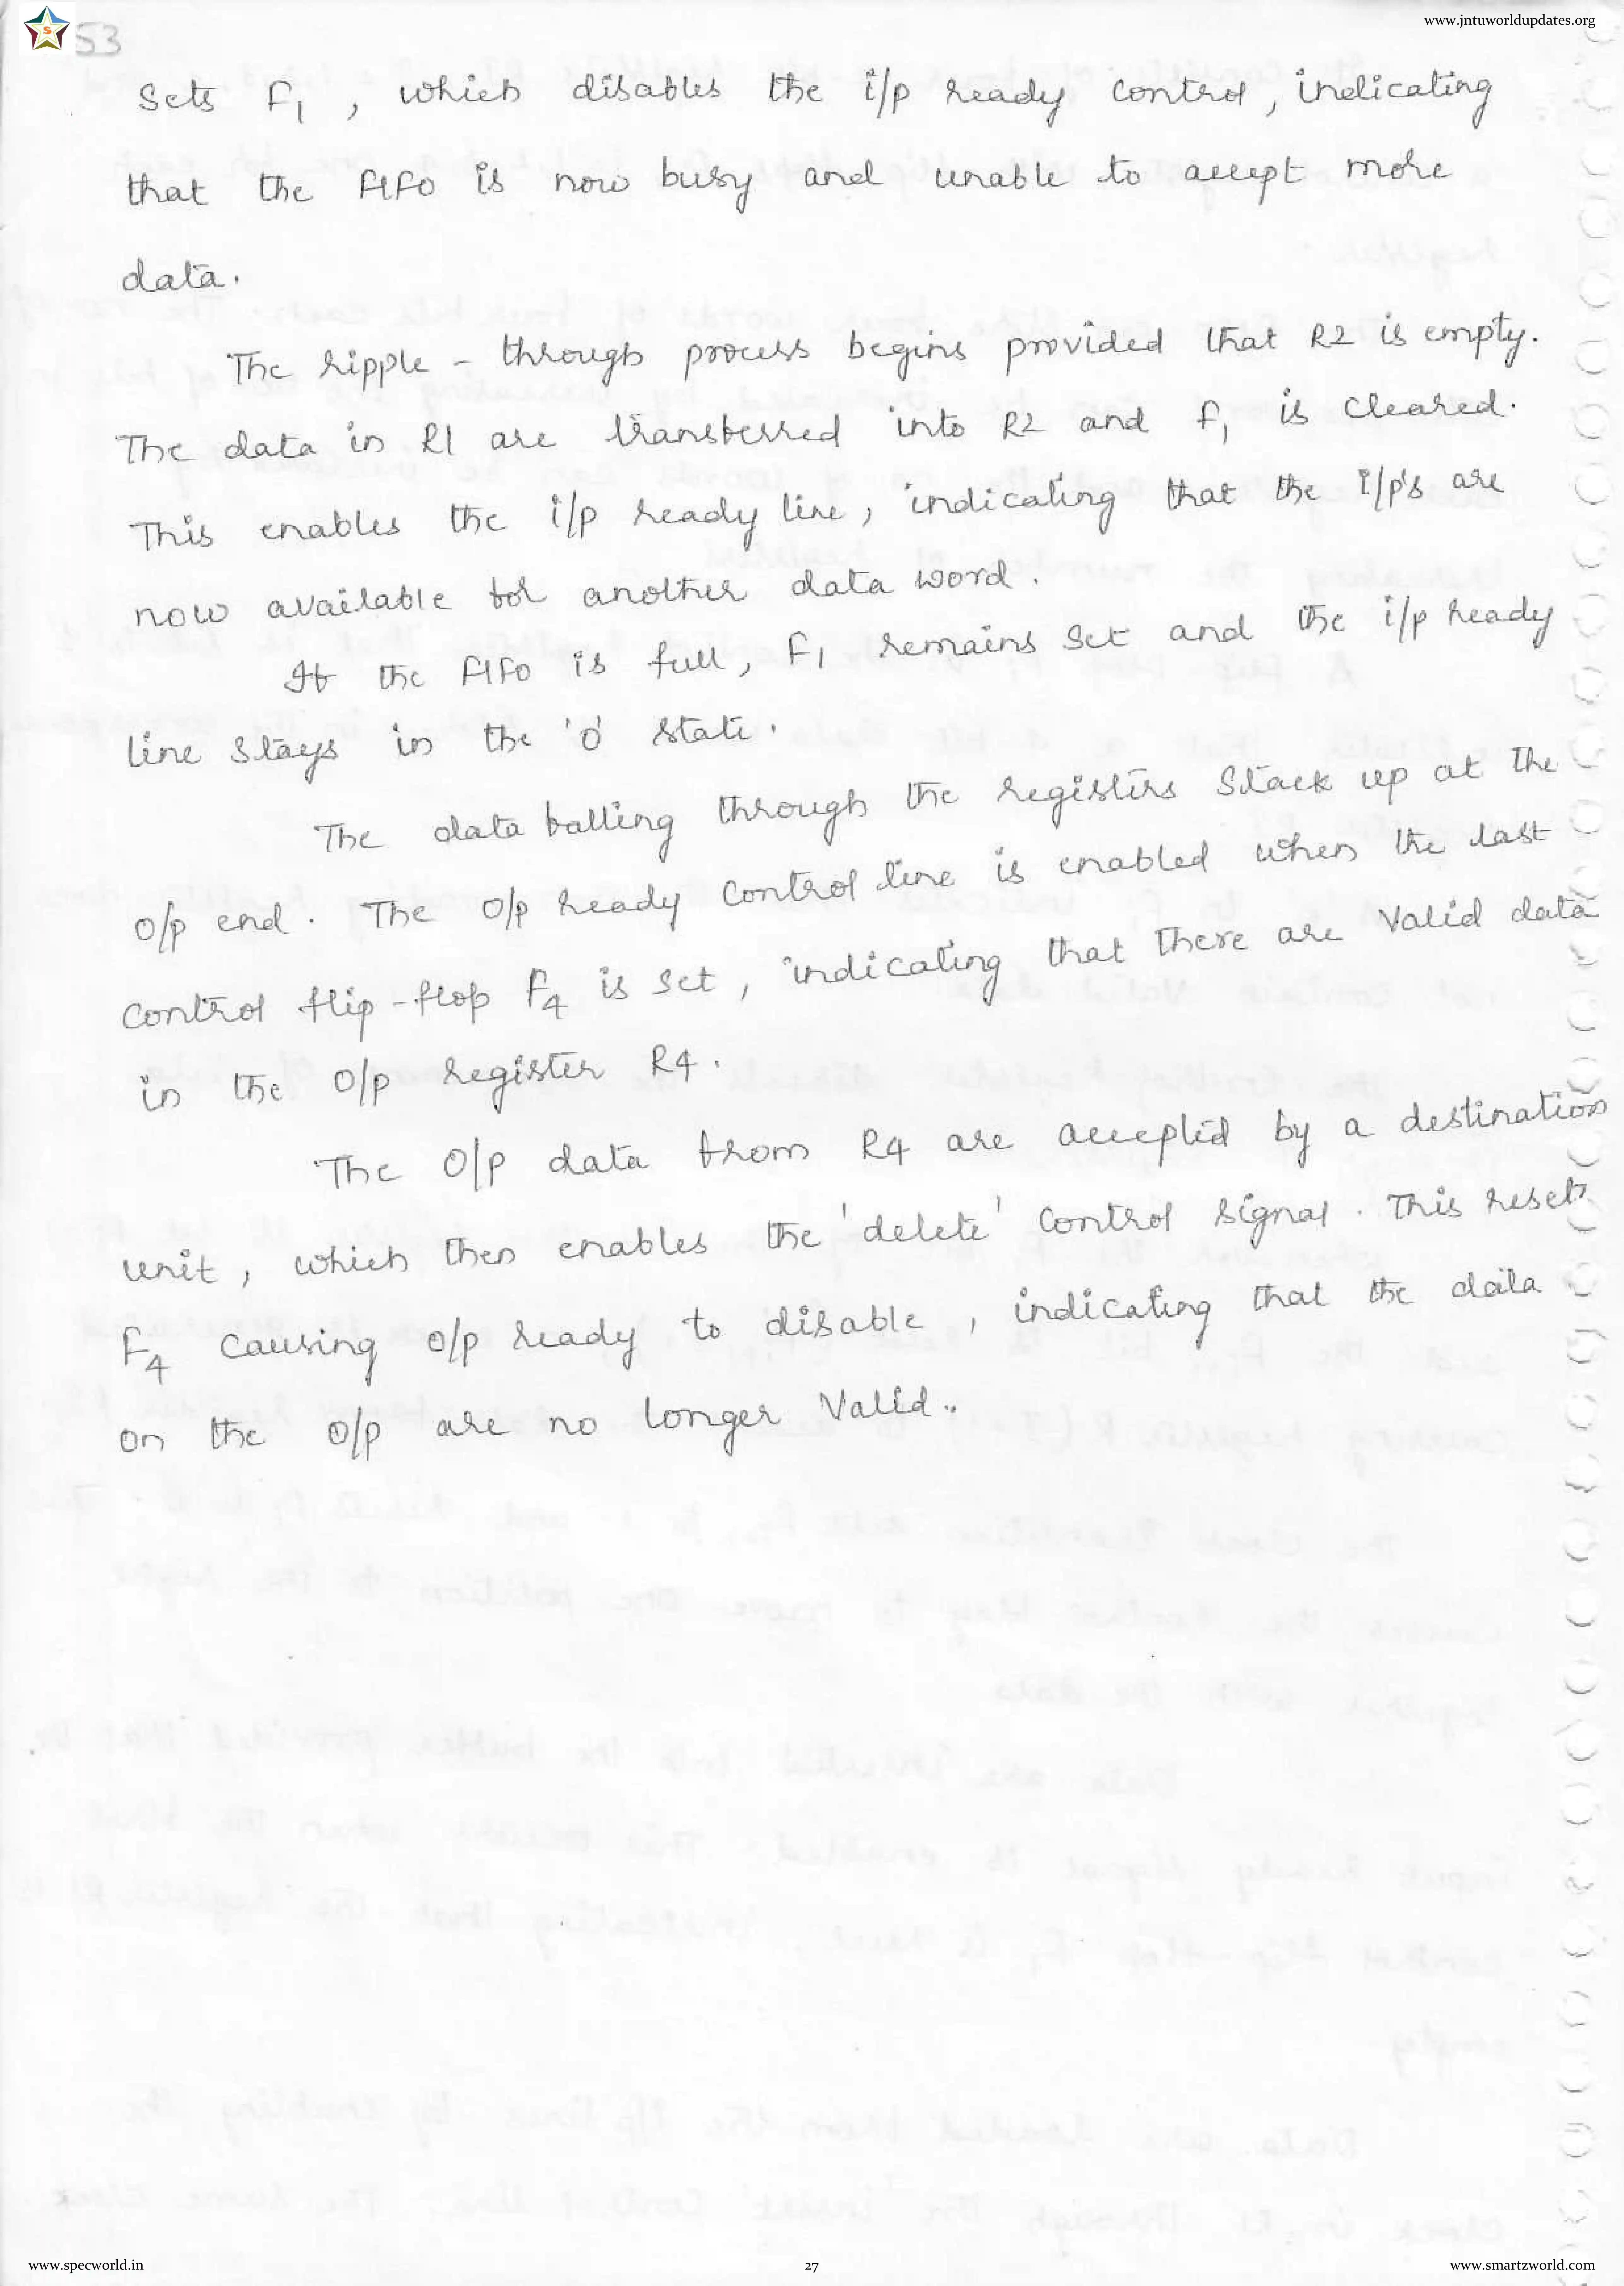 www.jntuworldupdates.org
S
53
Sets F1, which disables the i/p ready control, indicating
that the FIFO is now busy and unable to accept more
data.
The ripple - through process begins provided that R2 is empty.
The data in R1 are transferred into R2 and F1 is cleared.
This enables the i/p ready line, indicating that the i/p's are
now available for another data word.
If the FIFO is full, F1 remains set and the i/p ready
line stays in the '0' state.
The data falling through the registers stack up at the
o/p end. The o/p ready control line is enabled when the last
control flip-flop F4 is set, indicating that there are valid data
in the o/p register R4.
The o/p data from R4 are accepted by a destination
unit, which then enables the 'delete' control signal. This resets
F4 causing o/p ready to disable, indicating that the data
on the o/p are no longer valid..
www.specworld.in
27
www.smartzworld.com